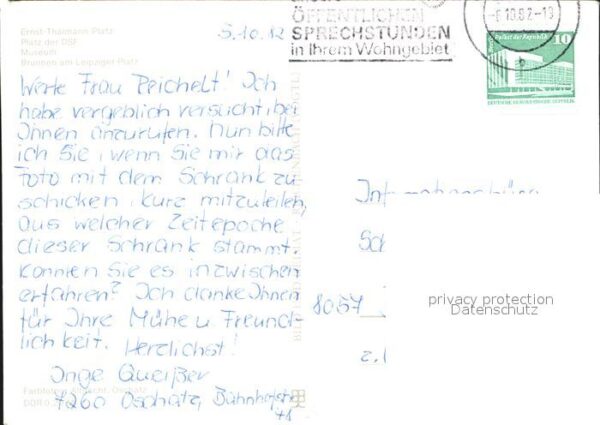 Ernst-Thälmann-Platz
Platz der DSF
Museum
Brunnen am Leipziger Platz
5.10.82
ÖFFENTLICHEN
SPRECHSTUNDEN
in Ihrem Wohngebiet
-6.10.82-13
b
Palast der Republik
10
DEUTSCHE DEMOKRATISCHE REPUBLIK
Werte Frau Peichelt! Ich
habe vergeblich versucht, bei
Ihnen anzurufen. Nun bitte
ich Sie, wenn Sie mir das
Foto mit dem Schrank zu
schicken, kurz mitzuteilen,
aus welcher Zeitepoche
dieser Schrank stammt.
Können Sie es inzwischen
erfahren? Ich danke Ihnen
für Ihre Mühe u. Freund-
lichkeit. Herzlichst!
Inge Queißer
7260 Oschatz, Bahnhofstr.
Informationsbüro
Sc
8057
z.
privacy protection
Datenschutz
Oschatz
DDR